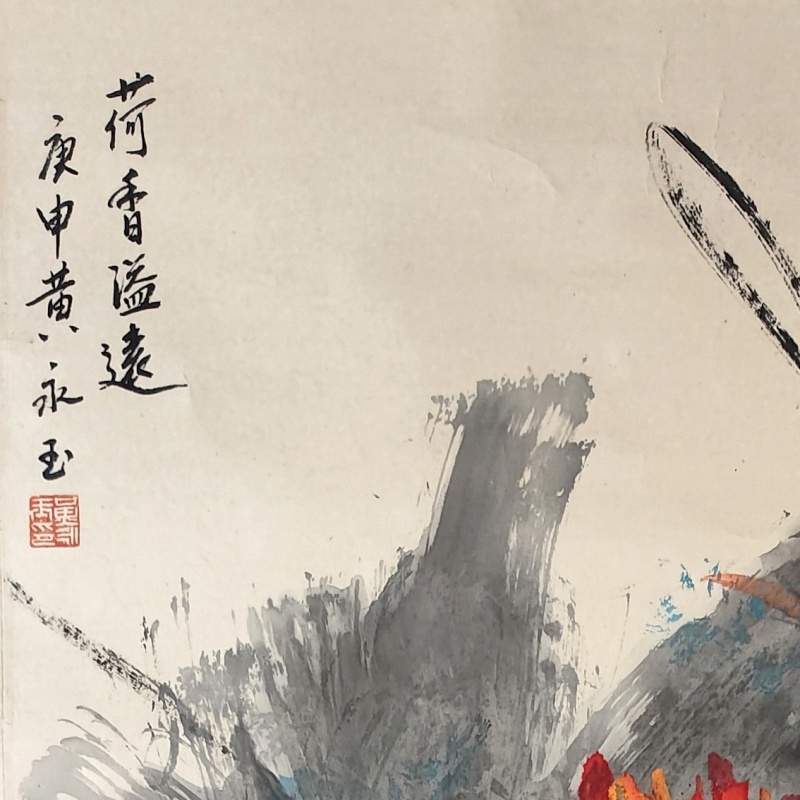 荷香溢遠
庚申黄永玉